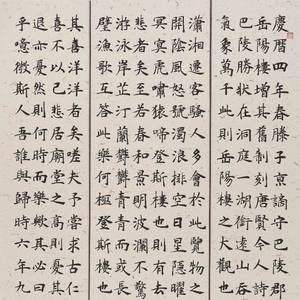 慶曆四年春滕子京謫守巴陵郡
岳陽樓增其舊制刻唐賢今人詩
巴陵勝狀在洞庭一湖銜遠山吞
氣象萬千此則岳陽樓之大觀也
瀟湘遷客騷人多會於此覽物之
開陰風怒號濁浪排空日星隱曜
冥冥虎嘯猿啼登斯樓也則有去
悲者矣至若春和景明波瀾不驚
游泳岸芷汀蘭鬱鬱青青而或長
璧漁歌互答此樂何極登斯樓也
其喜洋洋者矣嗟夫予嘗求古仁
喜不以己悲居廟堂之高則憂其
退亦憂然則何時而樂歟其必曰
乎噫微斯人吾誰與歸時六年九